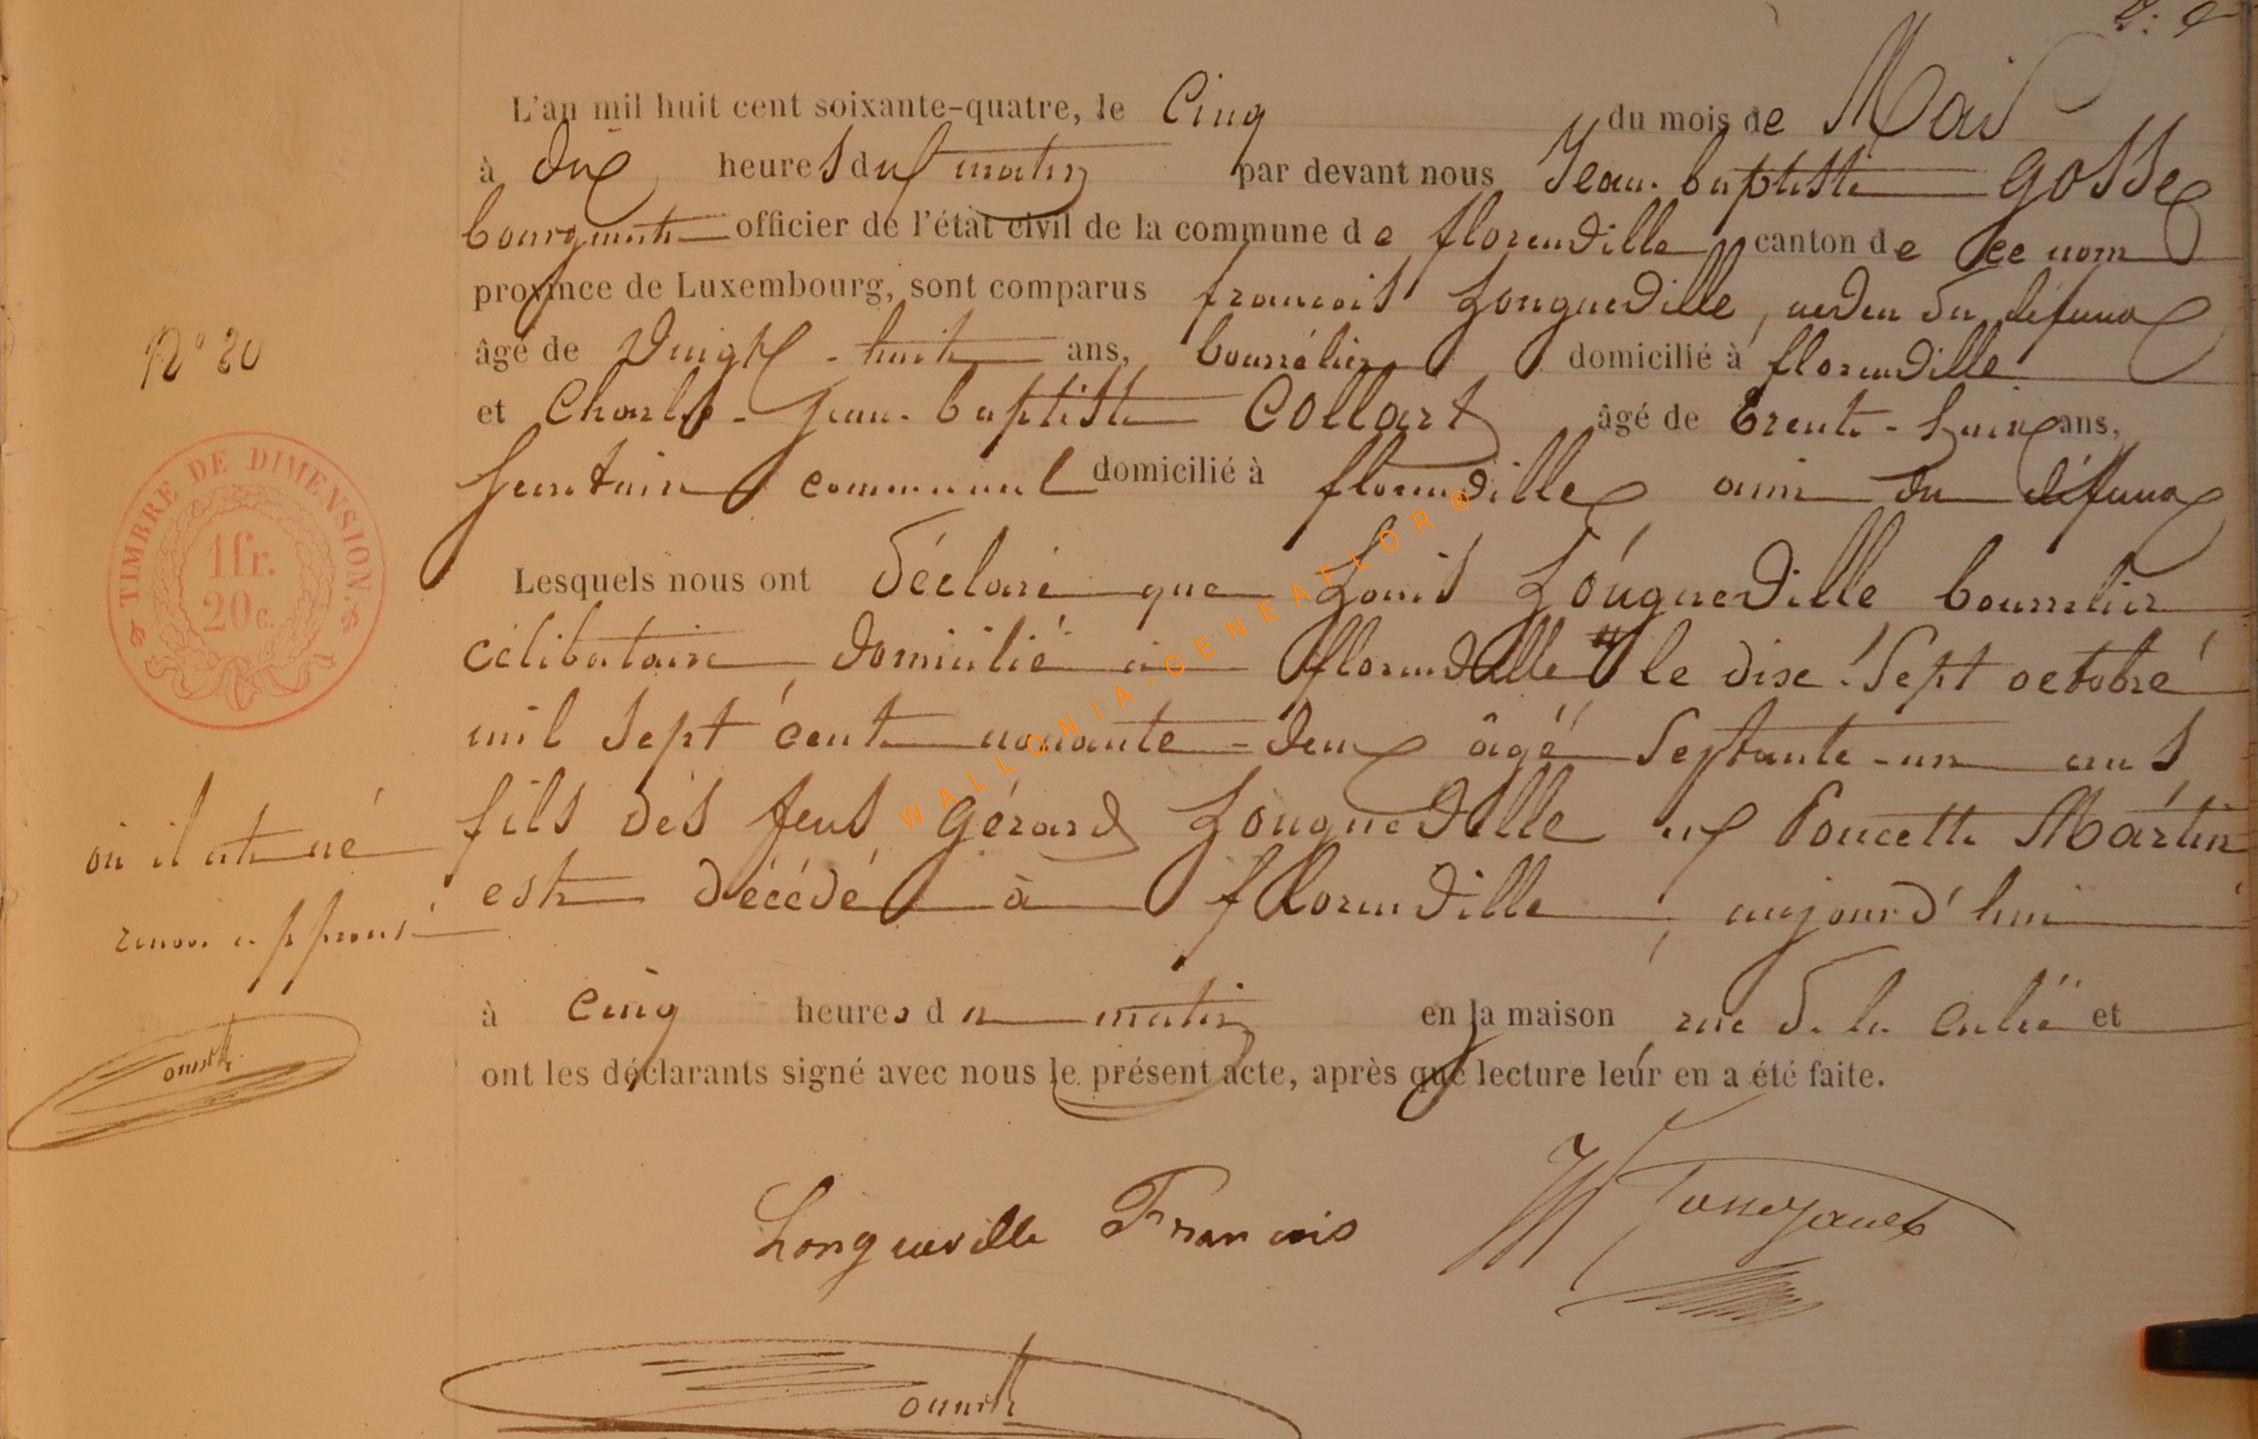 L'an mil huit cent soixante-quatre, le Cinq du mois de Mai
à dix heures du matin par devant nous Jean-baptiste Gosse
bourgmestre officier de l'état civil de la commune de florenville canton de ce nom
province de Luxembourg, sont comparus francois Longueville, neveu du défunt
N° 20
âgé de vingt-huit ans, bourrelier domicilié à florenville
et Charles-Jean-baptiste Collart âgé de trente-huit ans,
Secrétaire communal domicilié à florenville ami du défunt
TIMBRE DE DIMENSION.
1fr.
20c.
Lesquels nous ont déclaré que Louis Longueville bourrelier
célibataire domicilié à florenville le dix-Sept octobre
mil sept cent nonante-deux âgé Septante-un ans
fils des feus Gérard Longueville et Poncette Martin
où il est né
est décédé à florenville, aujourd'hui
renvoi approuvé
à cinq heures du matin en la maison rue de la et
ont les déclarants signé avec nous le présent acte, après que lecture leur en a été faite.
Longueville Francois
WALLONIA-GENEAFLOR®